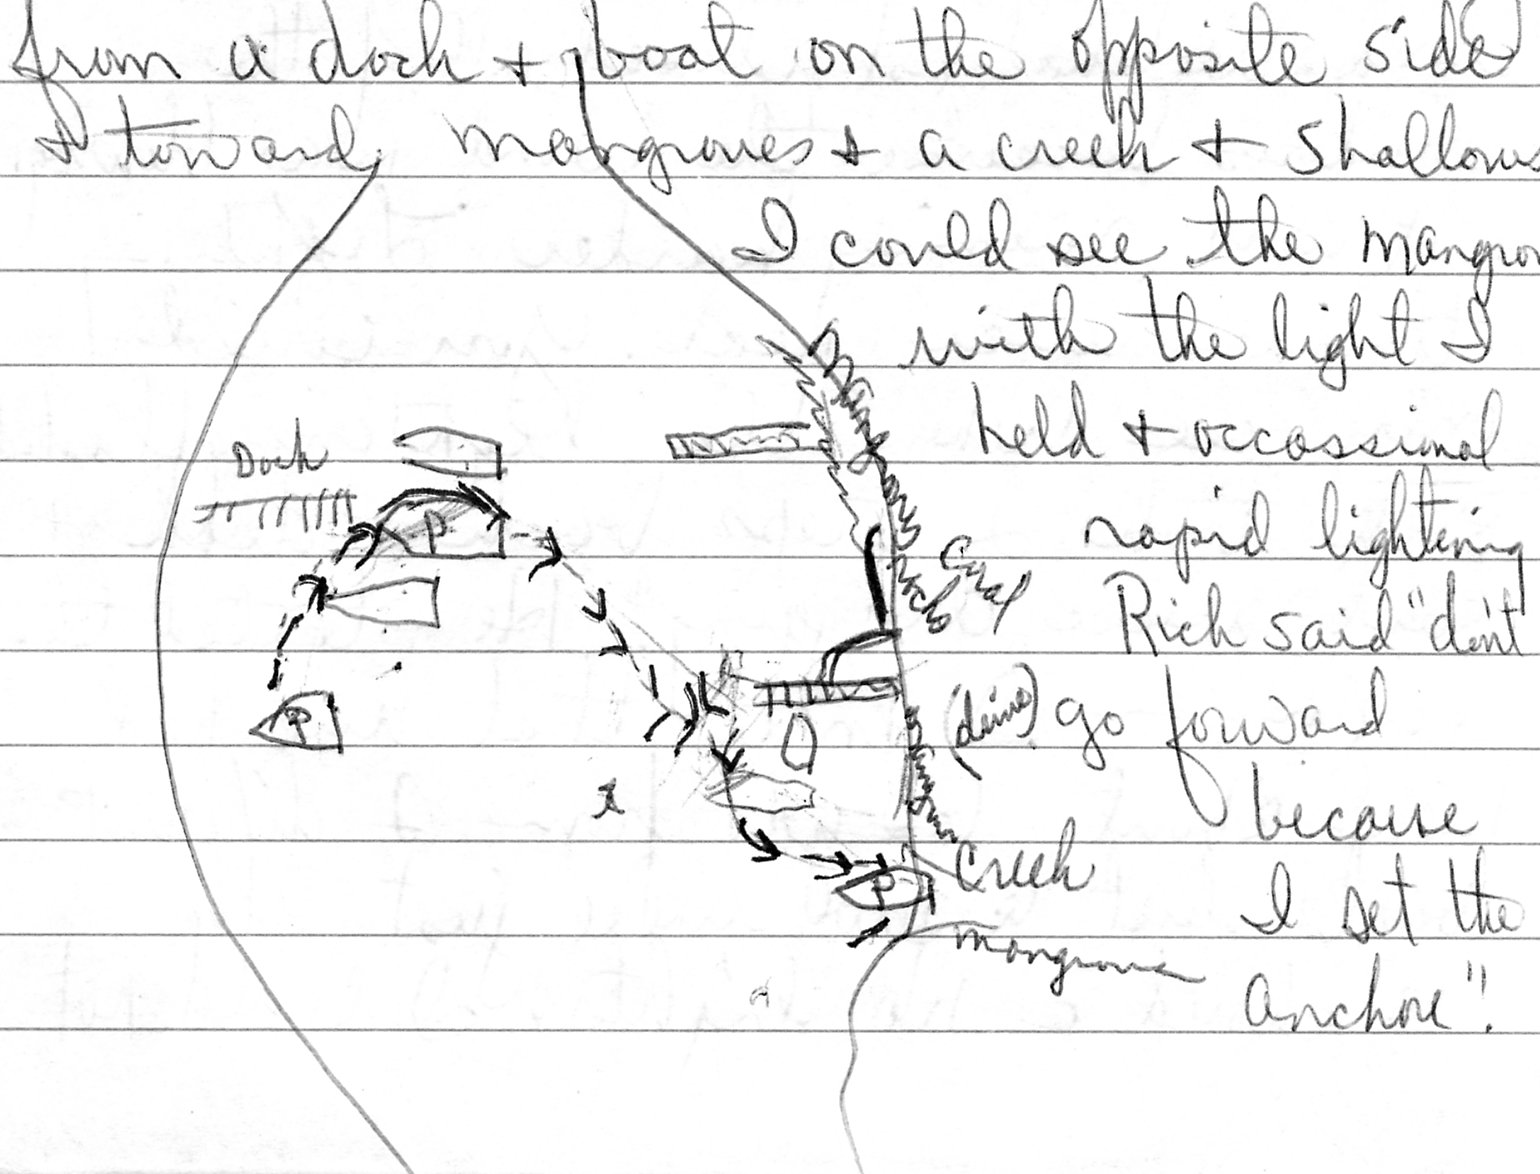 from a dock + boat on the opposite side
& toward mangroves & a creek + shallows
I could see the mangrov
with the light I
held + occassional
rapid lightening
Rich said "don't
go forward
because
I set the
anchore".
Dock
P
P
Mang
rocks
Coral
Creek
P
mangroves